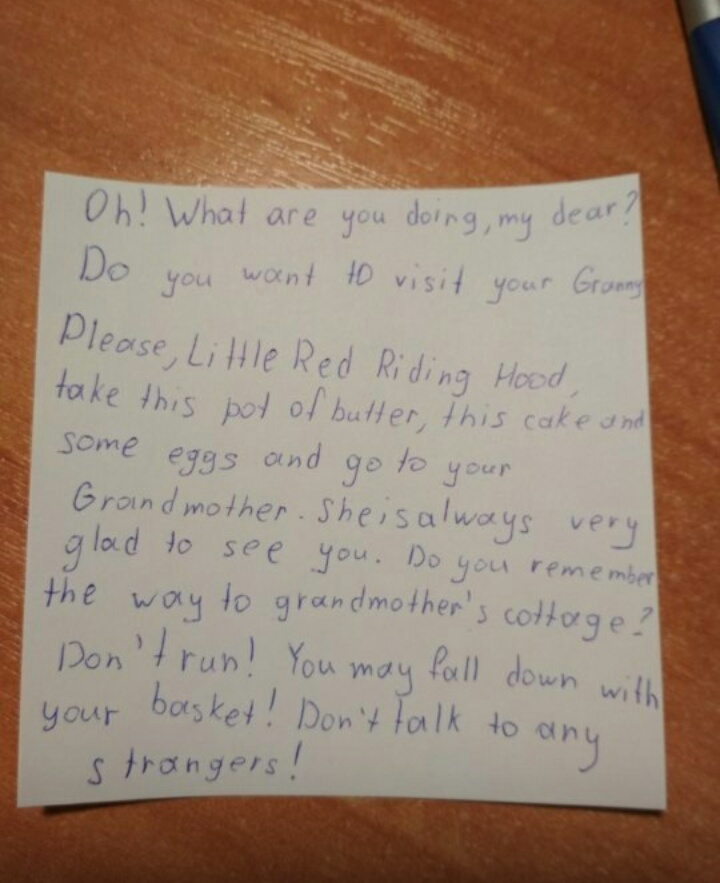 Oh! What are you doing, my dear?
Do you want to visit your Granny
Please, Little Red Riding Hood,
take this pot of butter, this cake and
some eggs and go to your
Grandmother. She is always very
glad to see you. Do you remember
the way to grandmother's cottage?
Don't run! You may fall down with
your basket! Don't talk to any
strangers!